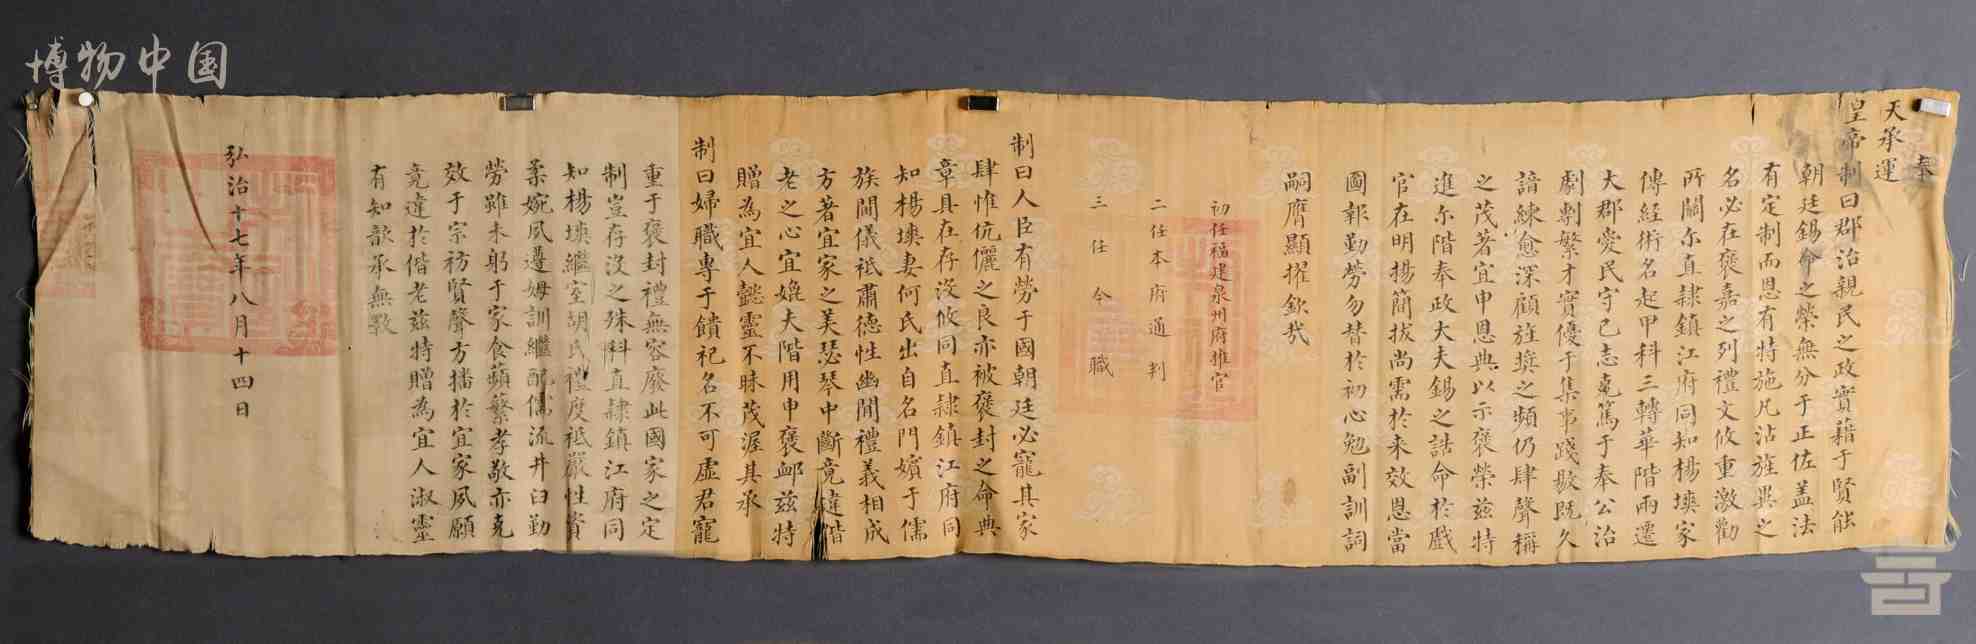 奉
天承運
皇帝制曰郡治親民之政實藉于賢能
朝廷錫命之榮無分于正佐蓋法
有定制而恩有特施凡沾旌異之
名必在褒嘉之列禮文攸重激勸
所關尔直隸鎮江府同知楊墺家
傳經術名起甲科三轉華階兩遷
大郡愛民守已志克篤于奉公治
劇剸繁才實優于集事踐敭既久
諳練愈深顧旌獎之頻仍肆聲稱
之茂著宜申恩典以示褒榮茲特
進尔階奉政大夫錫之誥命於戲
官在明揚簡拔尚需於来效恩當
圖報勤勞勿替於初心勉副訓詞
嗣膺顯擢欽哉
初任福建泉州府推官
二任本府通判
三任今職
制曰人臣有勞于國朝廷必寵其家
肆惟伉儷之良亦被褒封之命典
章具在存沒攸同直隸鎮江府同
知楊墺妻何氏出自名門嬪于儒
族閫儀祇肅德性幽閒禮義相成
方著宜家之美瑟琴中斷竟違偕
老之心宜媲夫階用申褒卹茲特
贈為宜人懿靈不昧茂渥其承
制曰婦職專于饋祀名不可虛君寵
重于褒封禮無容廢此國家之定
制豈存沒之殊科直隸鎮江府同
知楊墺繼室胡氏禮度祗嚴性資
柔婉夙遵姆訓繼配儒流井臼勤
勞雖未躬于家食蘋蘩孝敬亦克
效于宗祊賢聲方播於宜家夙願
竟違於偕老茲特贈為宜人淑靈
有知歆承無斁
弘治十七年八月十四日
博物中国